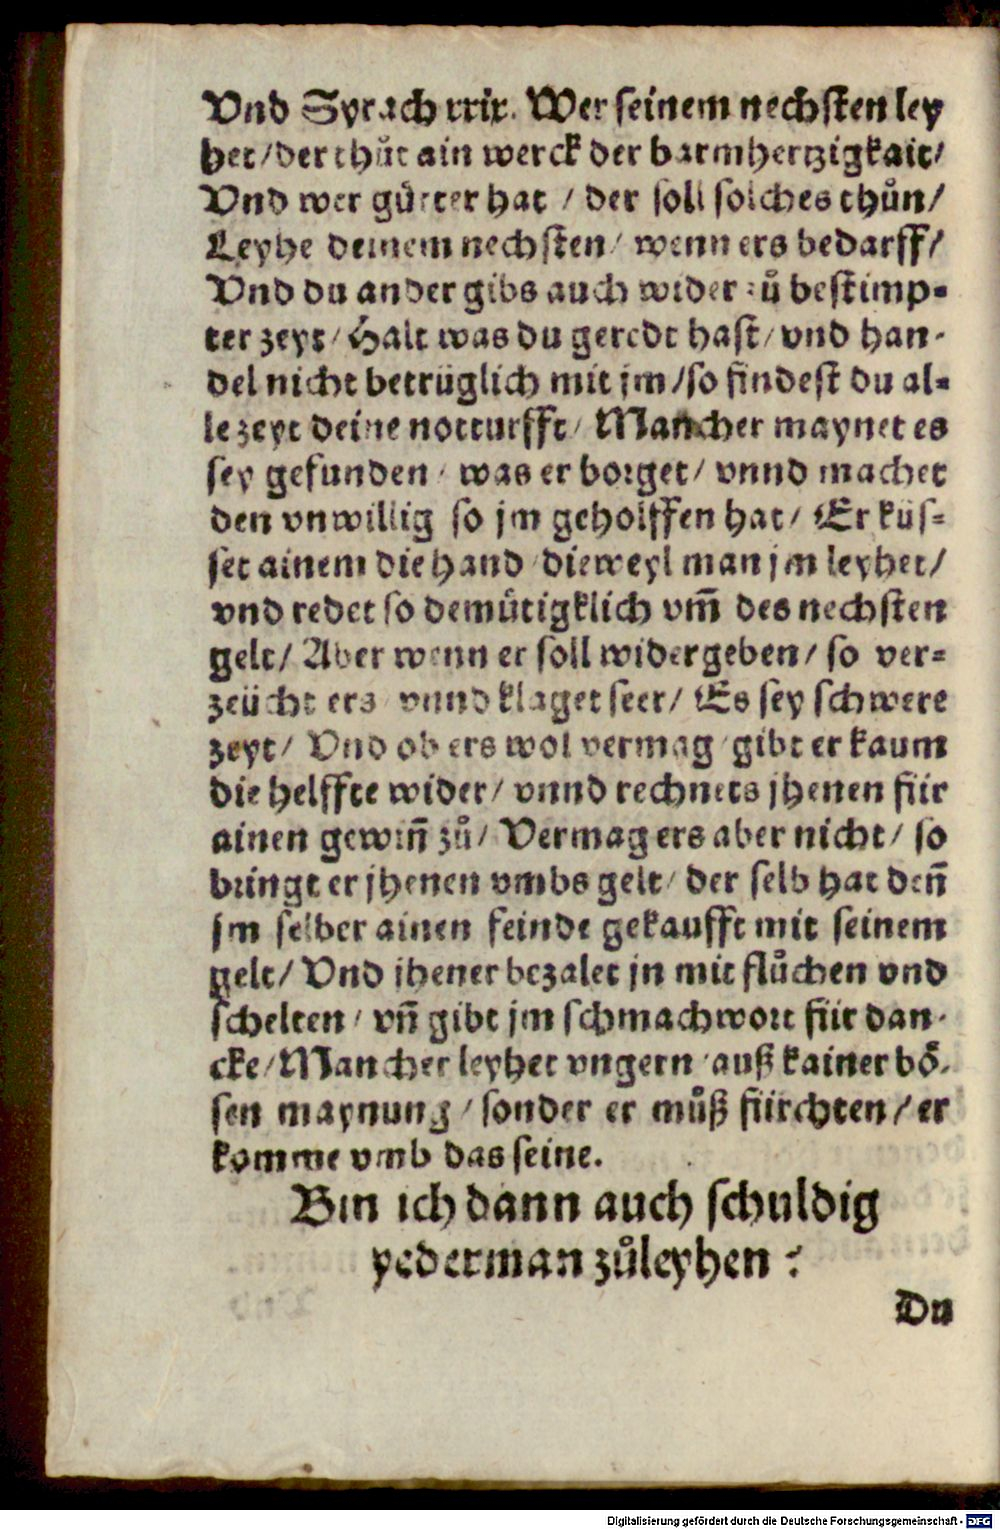 Vnd Syrach xxix. Wer seinem nechsten ley
het/der thůt ain werck der barmhertzigkait/
Vnd wer gůtter hat / der soll solches thůn/
Leyhe deinem nechsten/ wenn ers bedarff/
Vnd du ander gibs auch wider zů bestimp-
ter zeyt/ Halt was du geredt hast/ vnd han-
del nicht betrüglich mit jm/so findest du al-
le zeyt deine notturfft/ Mancher maynet es
sey gefunden/ was er borget/ vnnd machet
den vnwillig so jm geholffen hat/ Er küs-
set ainem die hand/ dieweyl man jm leyhet/
vnd redet so demůtigklich vm̃ des nechsten
gelt/ Aber wenn er soll widergeben/ so ver-
zeücht ers/ vnnd klaget seer/ Es sey schwere
zeyt/ Vnd ob ers wol vermag/ gibt er kaum
die helffte wider/ vnnd rechnets jhenen für
ainen gewiñ zů/ Vermag ers aber nicht/ so
bringt er jhenen vmbs gelt/ der selb hat deñ
jm selber ainen feinde gekaufft mit seinem
gelt/ Vnd jhener bezalet jn mit flůchen vnd
schelten/ vñ gibt jm schmachwort für dan-
cke/Mancher leyhet vngern/ auß kainer bö-
sen maynung/ sonder er můß fürchten/ er
komme vmb das seine.
Bin ich dann auch schuldig
yederman zůleyhen?
Du
Digitalisierung gefördert durch die Deutsche Forschungsgemeinschaft - DFG